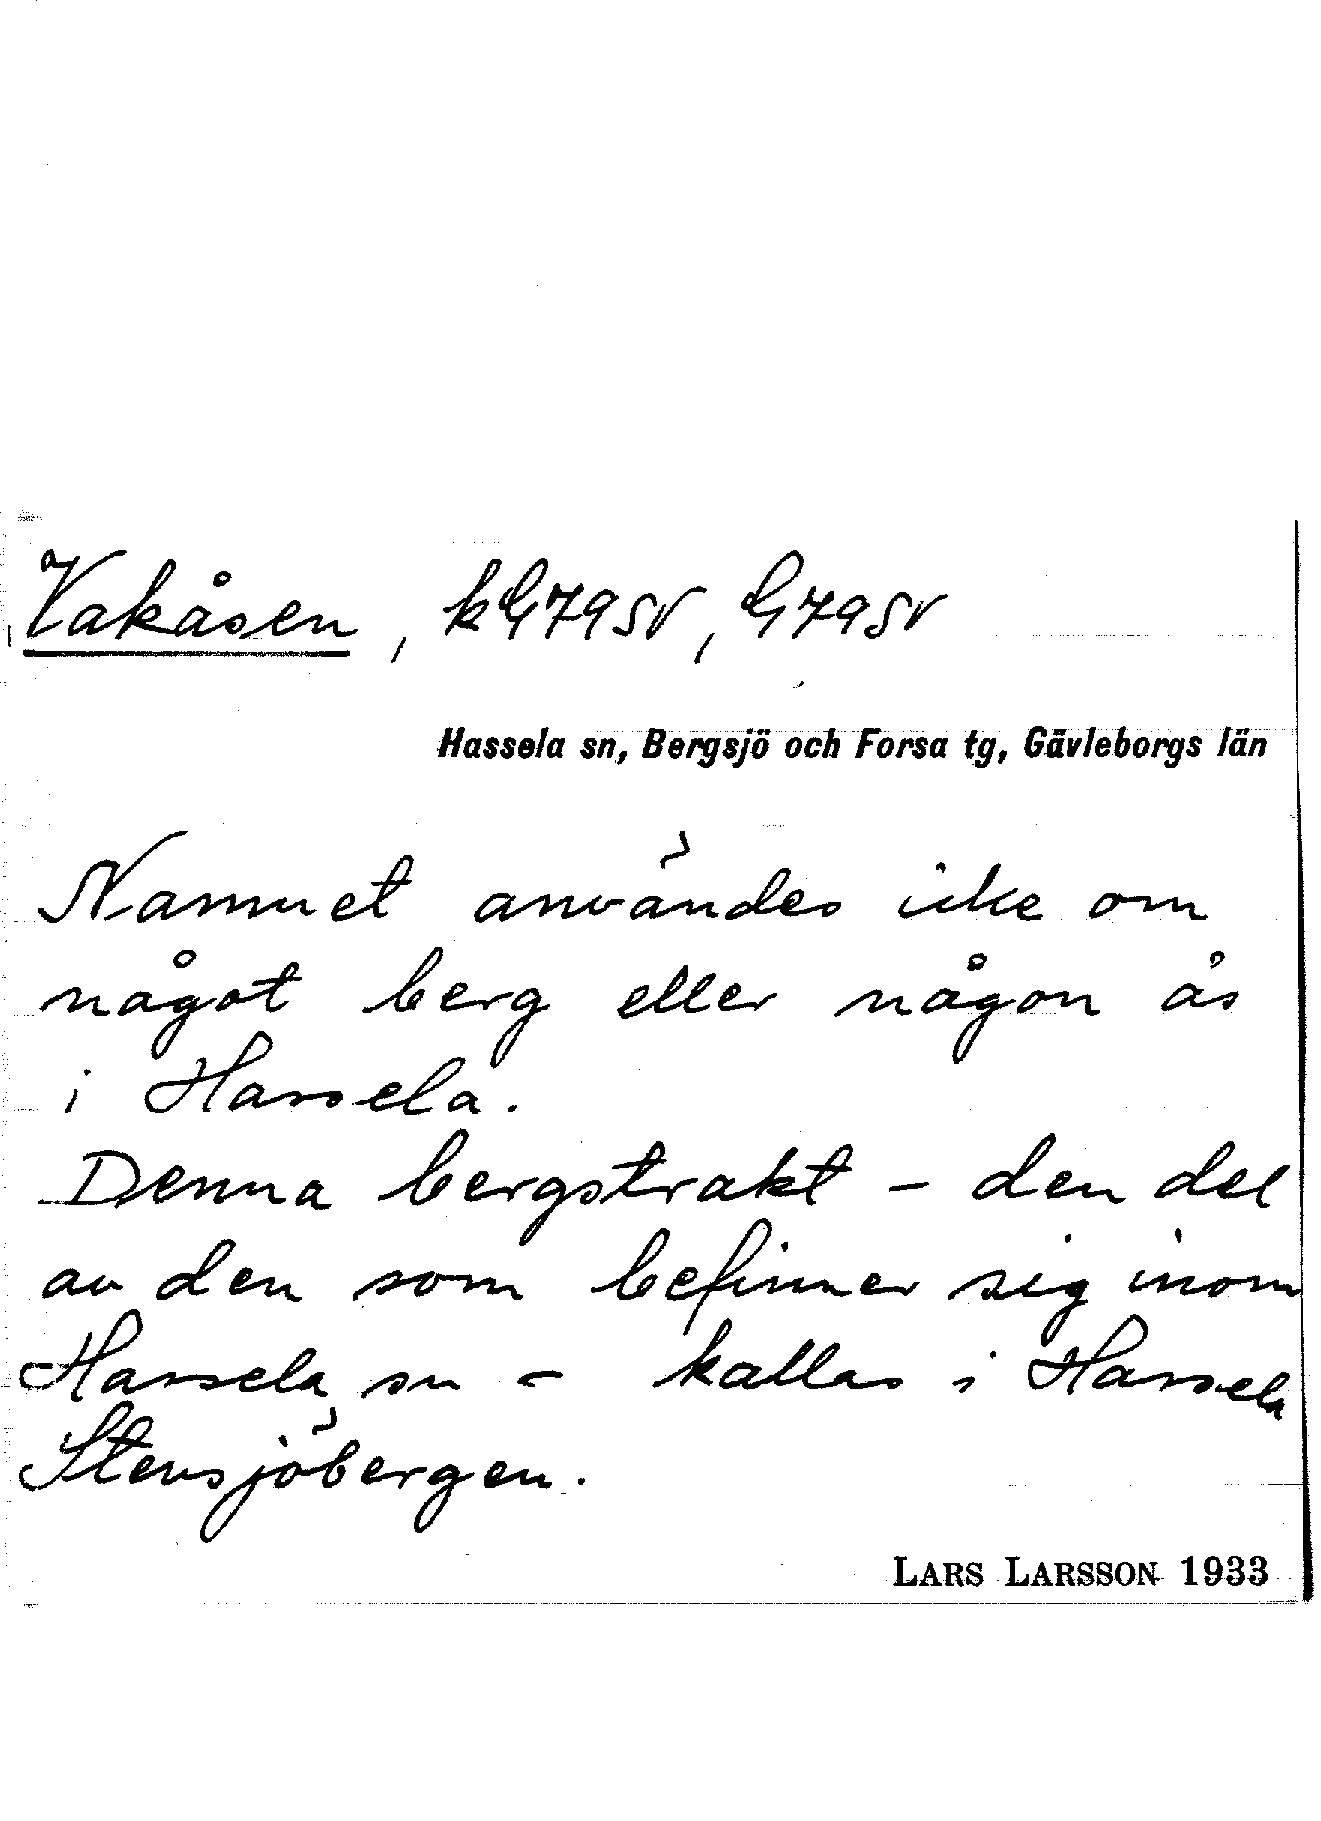 Vakåsen, kG79SV, G79SV
Hassela sn, Bergsjö och Forsa tg, Gävleborgs län
Namnet användes icke om
något berg eller någon ås
i Hassela.
Denna bergstrakt - den del
av den som befinner sig inom
Hassela sn - kallas i Hassela
Stensjöbergen.
LARS LARSSON 1933